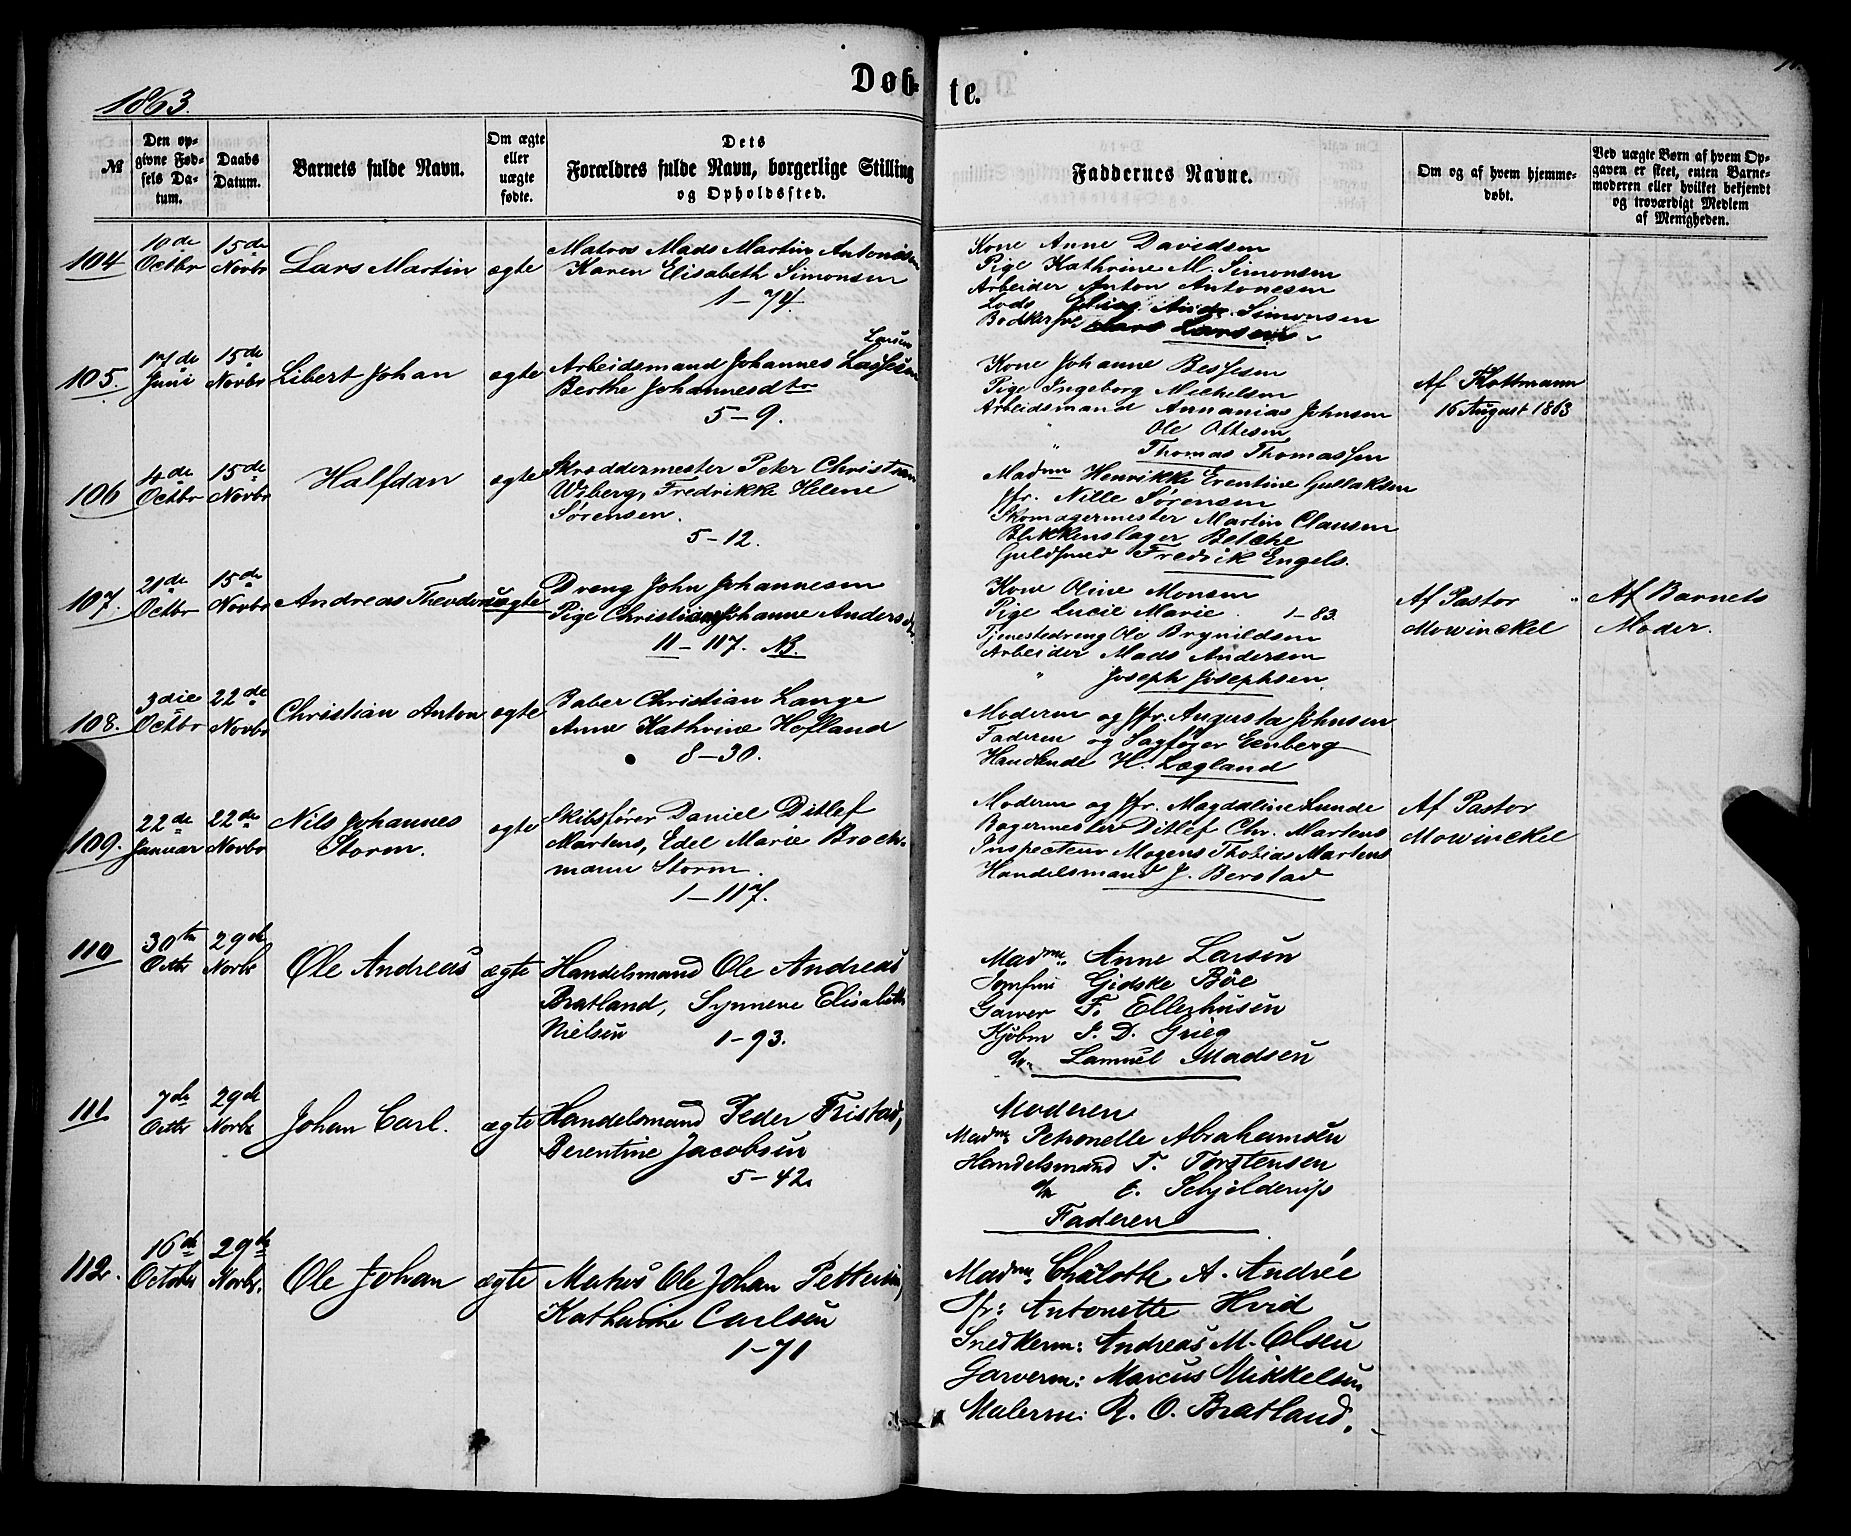 1863.
Døb-
te.
№
Den opgivne Fødsels Datum.
Daabs Datum.
Barnets fulde Navn.
Om ægte eller uægte fødte.
Dets
Forældres fulde Navn, borgerlige Stilling
og Opholdssted.
Faddernes Navne.
Om og af hvem hjemmedøbt.
Ved uægte Børn af hvem Opgaven er skeet, enten Barnemoderen eller hvilket bekjendt og troværdigt Medlem af Menigheden.
104
10de Octbr
15de Novbr
Lars Martin
ægte
Matros Mads Martin Antonisen
Karen Elisabeth Simonsen
1-74.
Kone Anne Davidsen
Pige Kathrine M. Simonsen
Arbeider Anton Antonesen
Simonsen
Larsen
105.
17de Juni
15de Novbr
Libert Johan
ægte
Larsen
Arbeidsmand Johannes Lassesen
Berthe Johannesdtr
5-9.
Kone Johanne Bessesen
Pige Ingeborg Michelsen
Arbeidsmand Annanias Johnsen
Ole Ottesen
" Thomas Thomassen
Af Kottmann
16 August 1863
106
4de Octbr
15de Novbr
Halfdan
ægte
Skræddermester Peter Christian
Wiberg, Fredrikke Helene
Sørensen.
5-12.
Madme Henrikke Erentine Gullaksen
Jfr. Nille Sørensen
Skomagermester Martin Clausen
Blikkenslager
Guldsmed Fredrik Engels.
107.
21de Octbr
15de Novbr
Andreas Theodor
uægte
Dreng John Johannesen
Pige Christiane Johanne Andersdr.
11-117. NB.
Kone Oline Monsen
Pige Lucie Marie 1-83.
Tjenestedreng Ole Brynildsen
Arbeider Mads Andersen
" Joseph Josephsen.
Af Pastor
Mowinckel
Af Barnets
Moder.
108.
3die Octbr
22de Novbr
Christian Anton
ægte
Christian Lange
Anne Kathrine Hofland
8-30.
Moderen og Jfr. Augusta Johnsen
Faderen og Sagfører Eenberg
H. Lægland
109.
22de Januar
22de Novbr
Nils Johannes
Storm.
ægte
Skibsfører Daniel Ditlef
Martens, Edel Marie Brochmann Storm.
1-117.
Moderen og Jfr. Magdaline Lunde
Bagermester Ditlef Chr. Martens
Inspecteur Mogens Thobias Martens
Handelsmand J. Berstad
Af Pastor
Mowinckel
110
30te Octbr
29de Novbr
Ole Andreas
ægte
Handelsmand Ole Andreas
Bratland, Synneve Elisabeth
Nielsen
1-93.
Madme. Anne Larsen
Jomfru Gidske Bøe
Garver F. Ellerhusen
Kjøbm J. D. Grieg
do. Samuel Madsen
111
7de Octbr
29de Novbr
Johan Carl.
ægte
Handelsmand Peder Fristad,
Berentine Jacobsen
5-42.
Moderen
Madme Petronelle Abrahamsen
Handelsmand T. Torstensen
do E. Schjelderup
Faderen
112.
16de October
29de Novbr.
Ole Johan
ægte
Matros Ole Johan Pettersen,
Katharine Carlsen
1-71
Madme. Chalotte A. Andrée
Jfr: Antonette Hvid
Snedkerm: Andreas M. Olsen
Garverm: Marcus Mikkelsen
Malerm: R. O. Bratland.